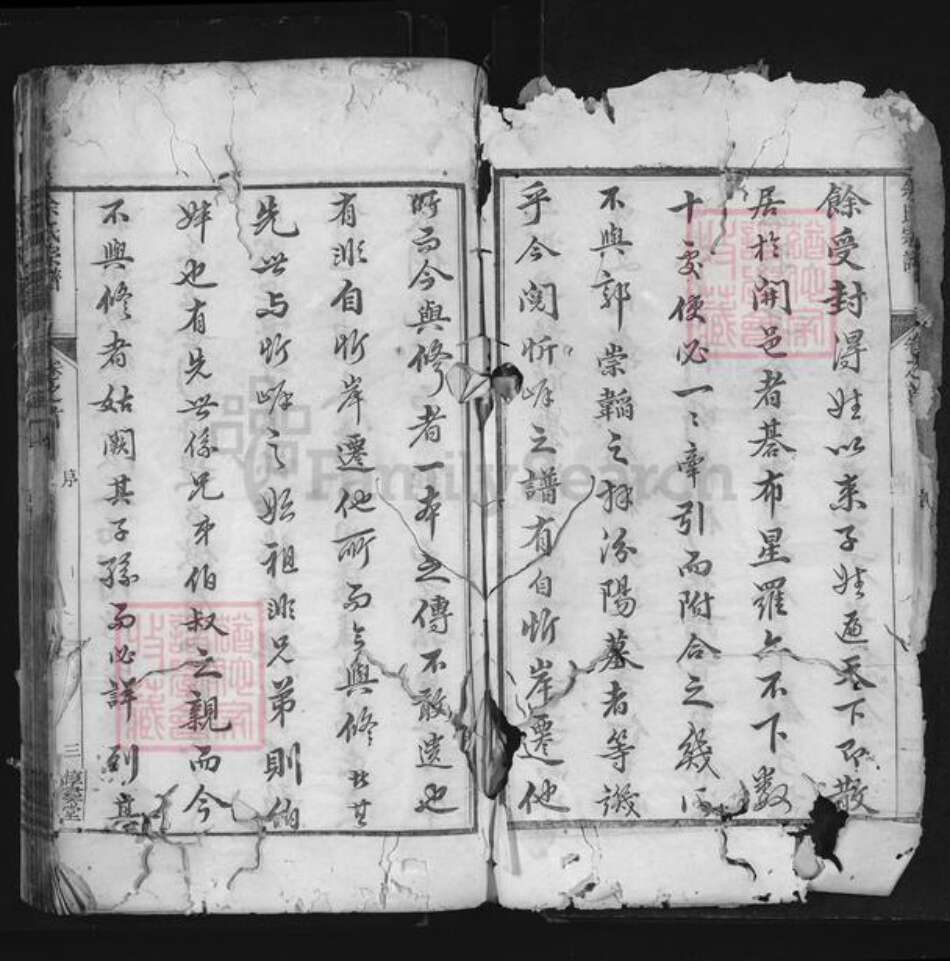 餘受封得姓以来子姓遍天下即散
居於開邑者碁布星羅亦不下数
十家便必一々牽引而附合之幾何
不與郭崇韜之拜汾陽墓者等譏
乎今閱忻岸之譜有自忻岸遷他
所而今與修者一本之傳不敢遺也
有非自忻岸遷他所而今與修者其
先世与忻岸之始祖非兄弟則伯
姓也有先世係兄弟伯叔之親而今
不與修者姑闕其子孫而必詳列其
序
三
FamilySearch